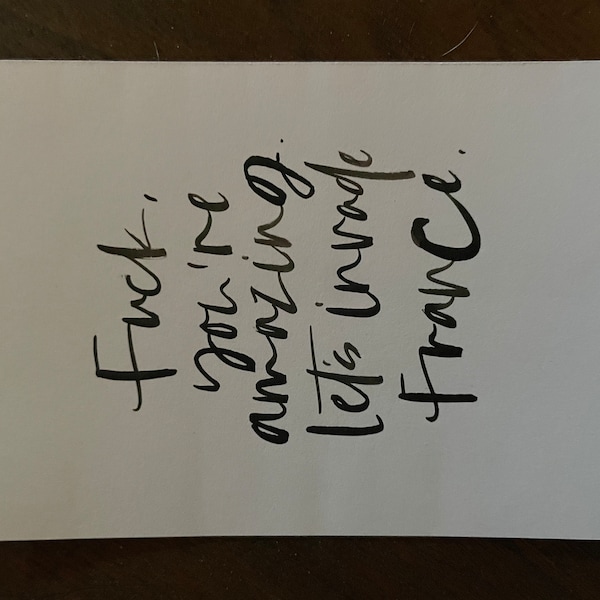 Fuck.
you're
amazing.
let's invade
France.